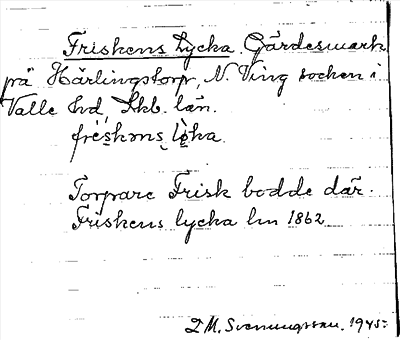 Friskens Lycka. Gärdesmark
på Härlingstorp, N. Ving socken i
Valle Hd, Skb. län.
Torpare Frisk bodde där.
Friskens lycka lm 1862
D.M. Svenungsson. 1945.